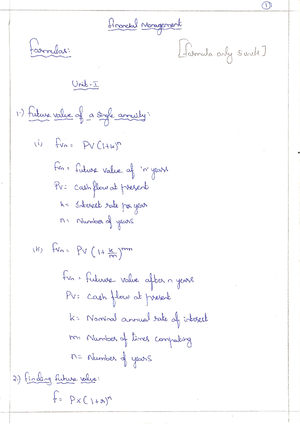 1
Financial Management
Formulas:
[formula only 5 unit]
Unit-I
1.) Future value of a single annuity:
(i) FVn = PV (1+k)ⁿ
FVn = future value of 'n' years
PV = cash flow at present
k = Interest rate per year
n = Number of years
(ii) FVn = PV (1 + k/m)ᵐⁿ
FVn = future value after n years
PV = cash flow at present
k = Nominal annual rate of interest
m = Number of times computing
n = Number of years
2.) Finding future value:
f = P×(1+r)ⁿ